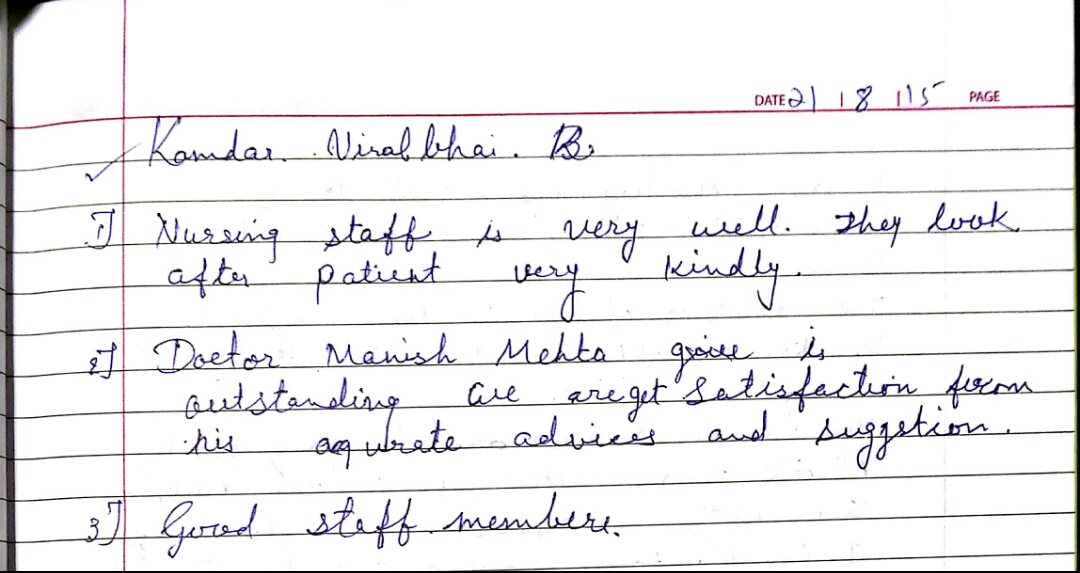 DATE 21 | 8 | 15 PAGE
Kamdar. Viralbhai. B.
1] Nursing staff is very well. They look
after patient very kindly.
2] Doctor Manish Mehta is
outstanding We are get satisfaction from
his aqurate advices and suggetion.
3] Good staff members.